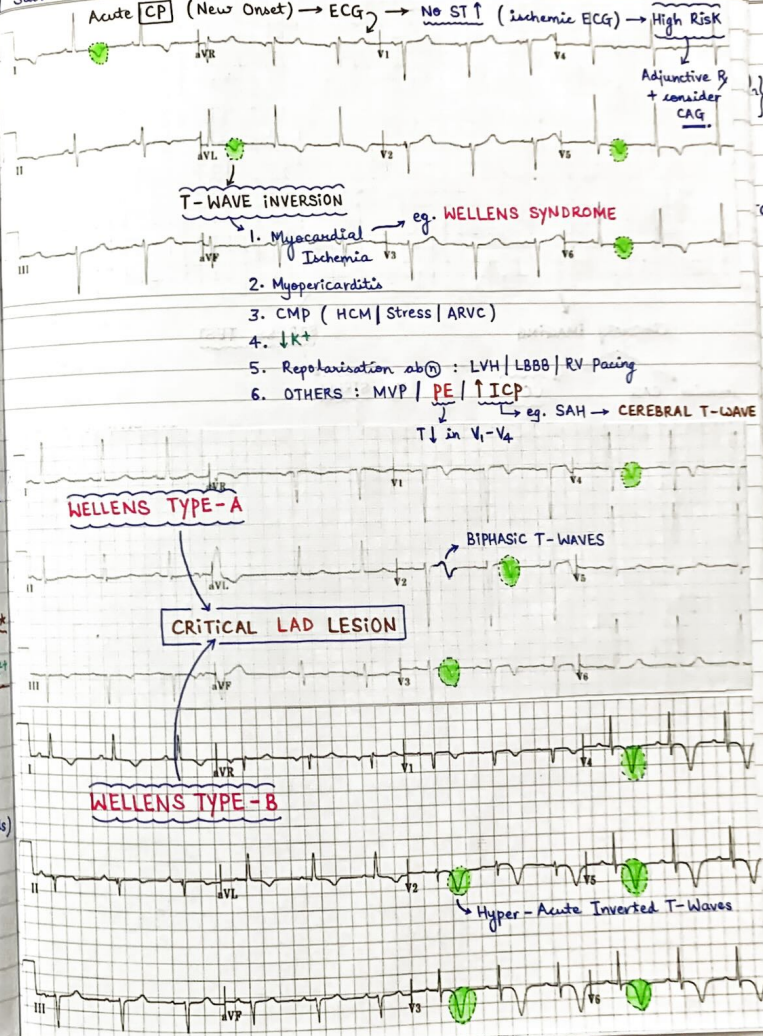 Acute CP (New Onset) → ECG → No ST↑ (ischemic ECG) → High Risk
Adjunctive Rx
+ consider
CAG.
I aVR V1 V4
II aVL V2 V5
T-WAVE INVERSION
1. Myocardial Ischemia → eg. WELLENS SYNDROME
III aVF V3 V6
2. Myopericarditis
3. CMP (HCM | Stress | ARVC)
4. ↓K+
5. Repolarisation ab(n) : LVH | LBBB | RV Pacing
6. OTHERS : MVP | PE | ↑ICP
eg. SAH → CEREBRAL T-WAVE
T↓ in V1-V4
I aVR V1 V4
WELLENS TYPE-A
BIPHASIC T-WAVES
II aVL V2 V5
CRITICAL LAD LESION
III aVF V3 V6
I aVR V1 V4
WELLENS TYPE-B
II aVL V2 V5
Hyper-Acute Inverted T-Waves
III aVF V3 V6